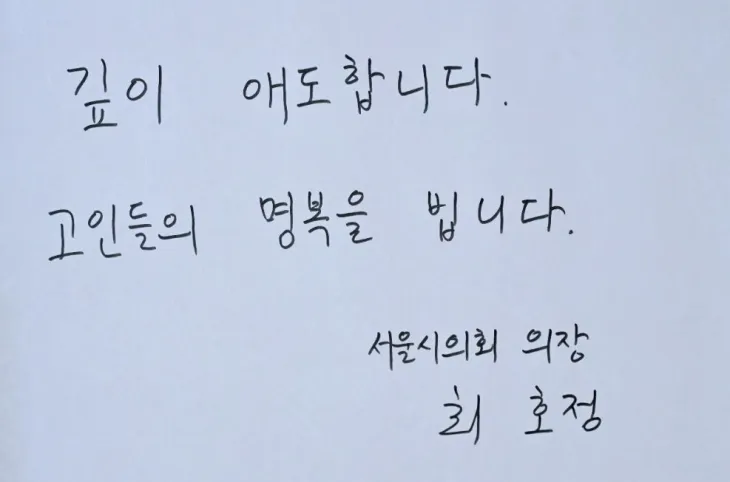 깊이 애도합니다.
고인들의 명복을 빕니다.
서울시의회 의장
최 호정